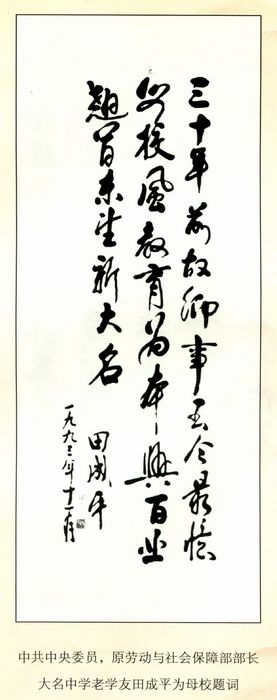 三十年前故鄉事至今最憶
母校風教育为本興百业
翘首东望新大名
田成平
一九九三年十一月
中共中央委员，原劳动与社会保障部部长
大名中学老学友田成平为母校题词